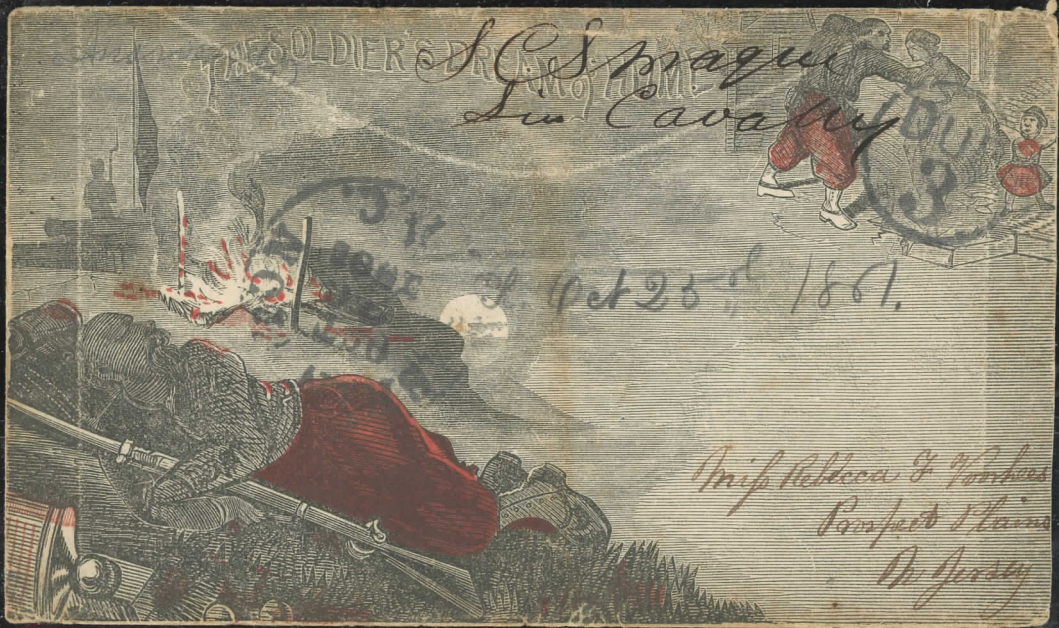 THE SOLDIER'S DREAM of HOME
S. C. Smaque
Lin Cavalry
DUE
3
Oct 23d 1861.
Miss Rebecca F Voorhees
Prospect Plains
N Jersey